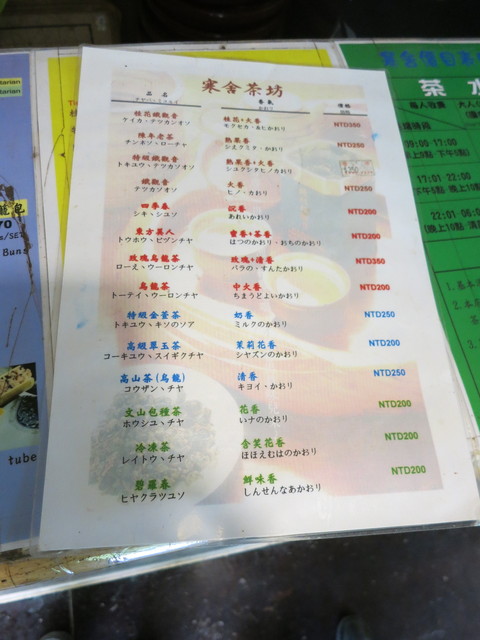 寒舍茶坊
品名 香氣 價格
桂花鐵觀音 桂花+火香 NTD350
ケイカ・テツカンオソ モクセカ・ルヒかおり
陳年老茶 熟果香 NTD250
チンネソ・ローチャ シュクミダ・かおり
特級鐵觀音 熟果香+火香
トキユウ・テツカソオソ シユクシダヒノカおり
鐵觀音 火香 NTD250
テツカソオソ ヒノ・カおり
四季春 沉香 NTD200
シキ・シユソ あれいかおり
東方美人 蜜香+茶香 NTD200
トウホウヘ・ビヅンチヤ はつのかおり・おちのかおり
玫瑰烏龍茶 玫瑰+清香 NTD350
ローえヽウーロンチヤ バラの・すんたかおり
烏龍茶 中火香 NTD200
トーテイヽウーロンチヤ ちまうどよいかおり
特級金萱茶 奶香 NTD250
トキユウヽキソのソア ミルクのかおり
高級翠玉茶 茉莉花香 NTD200
コーキユウ、スイギクチヤ シャズンのかおり
高山茶(烏龍) 清香 NTD250
コウザン、チヤ キヨイ・かおり
文山包種茶 花香 NTD200
ホウシユヽチヤ いナのかおり
冷凍茶 含笑花香 NTD200
レイトウヽチヤ ほほえむはのかおり
碧羅春 鮮味香 NTD200
ヒヤクラツユソ しんせんなあかおり
茶水
每人收費
09:00-17:00
17:01 22:00
22:01
Buns
tube